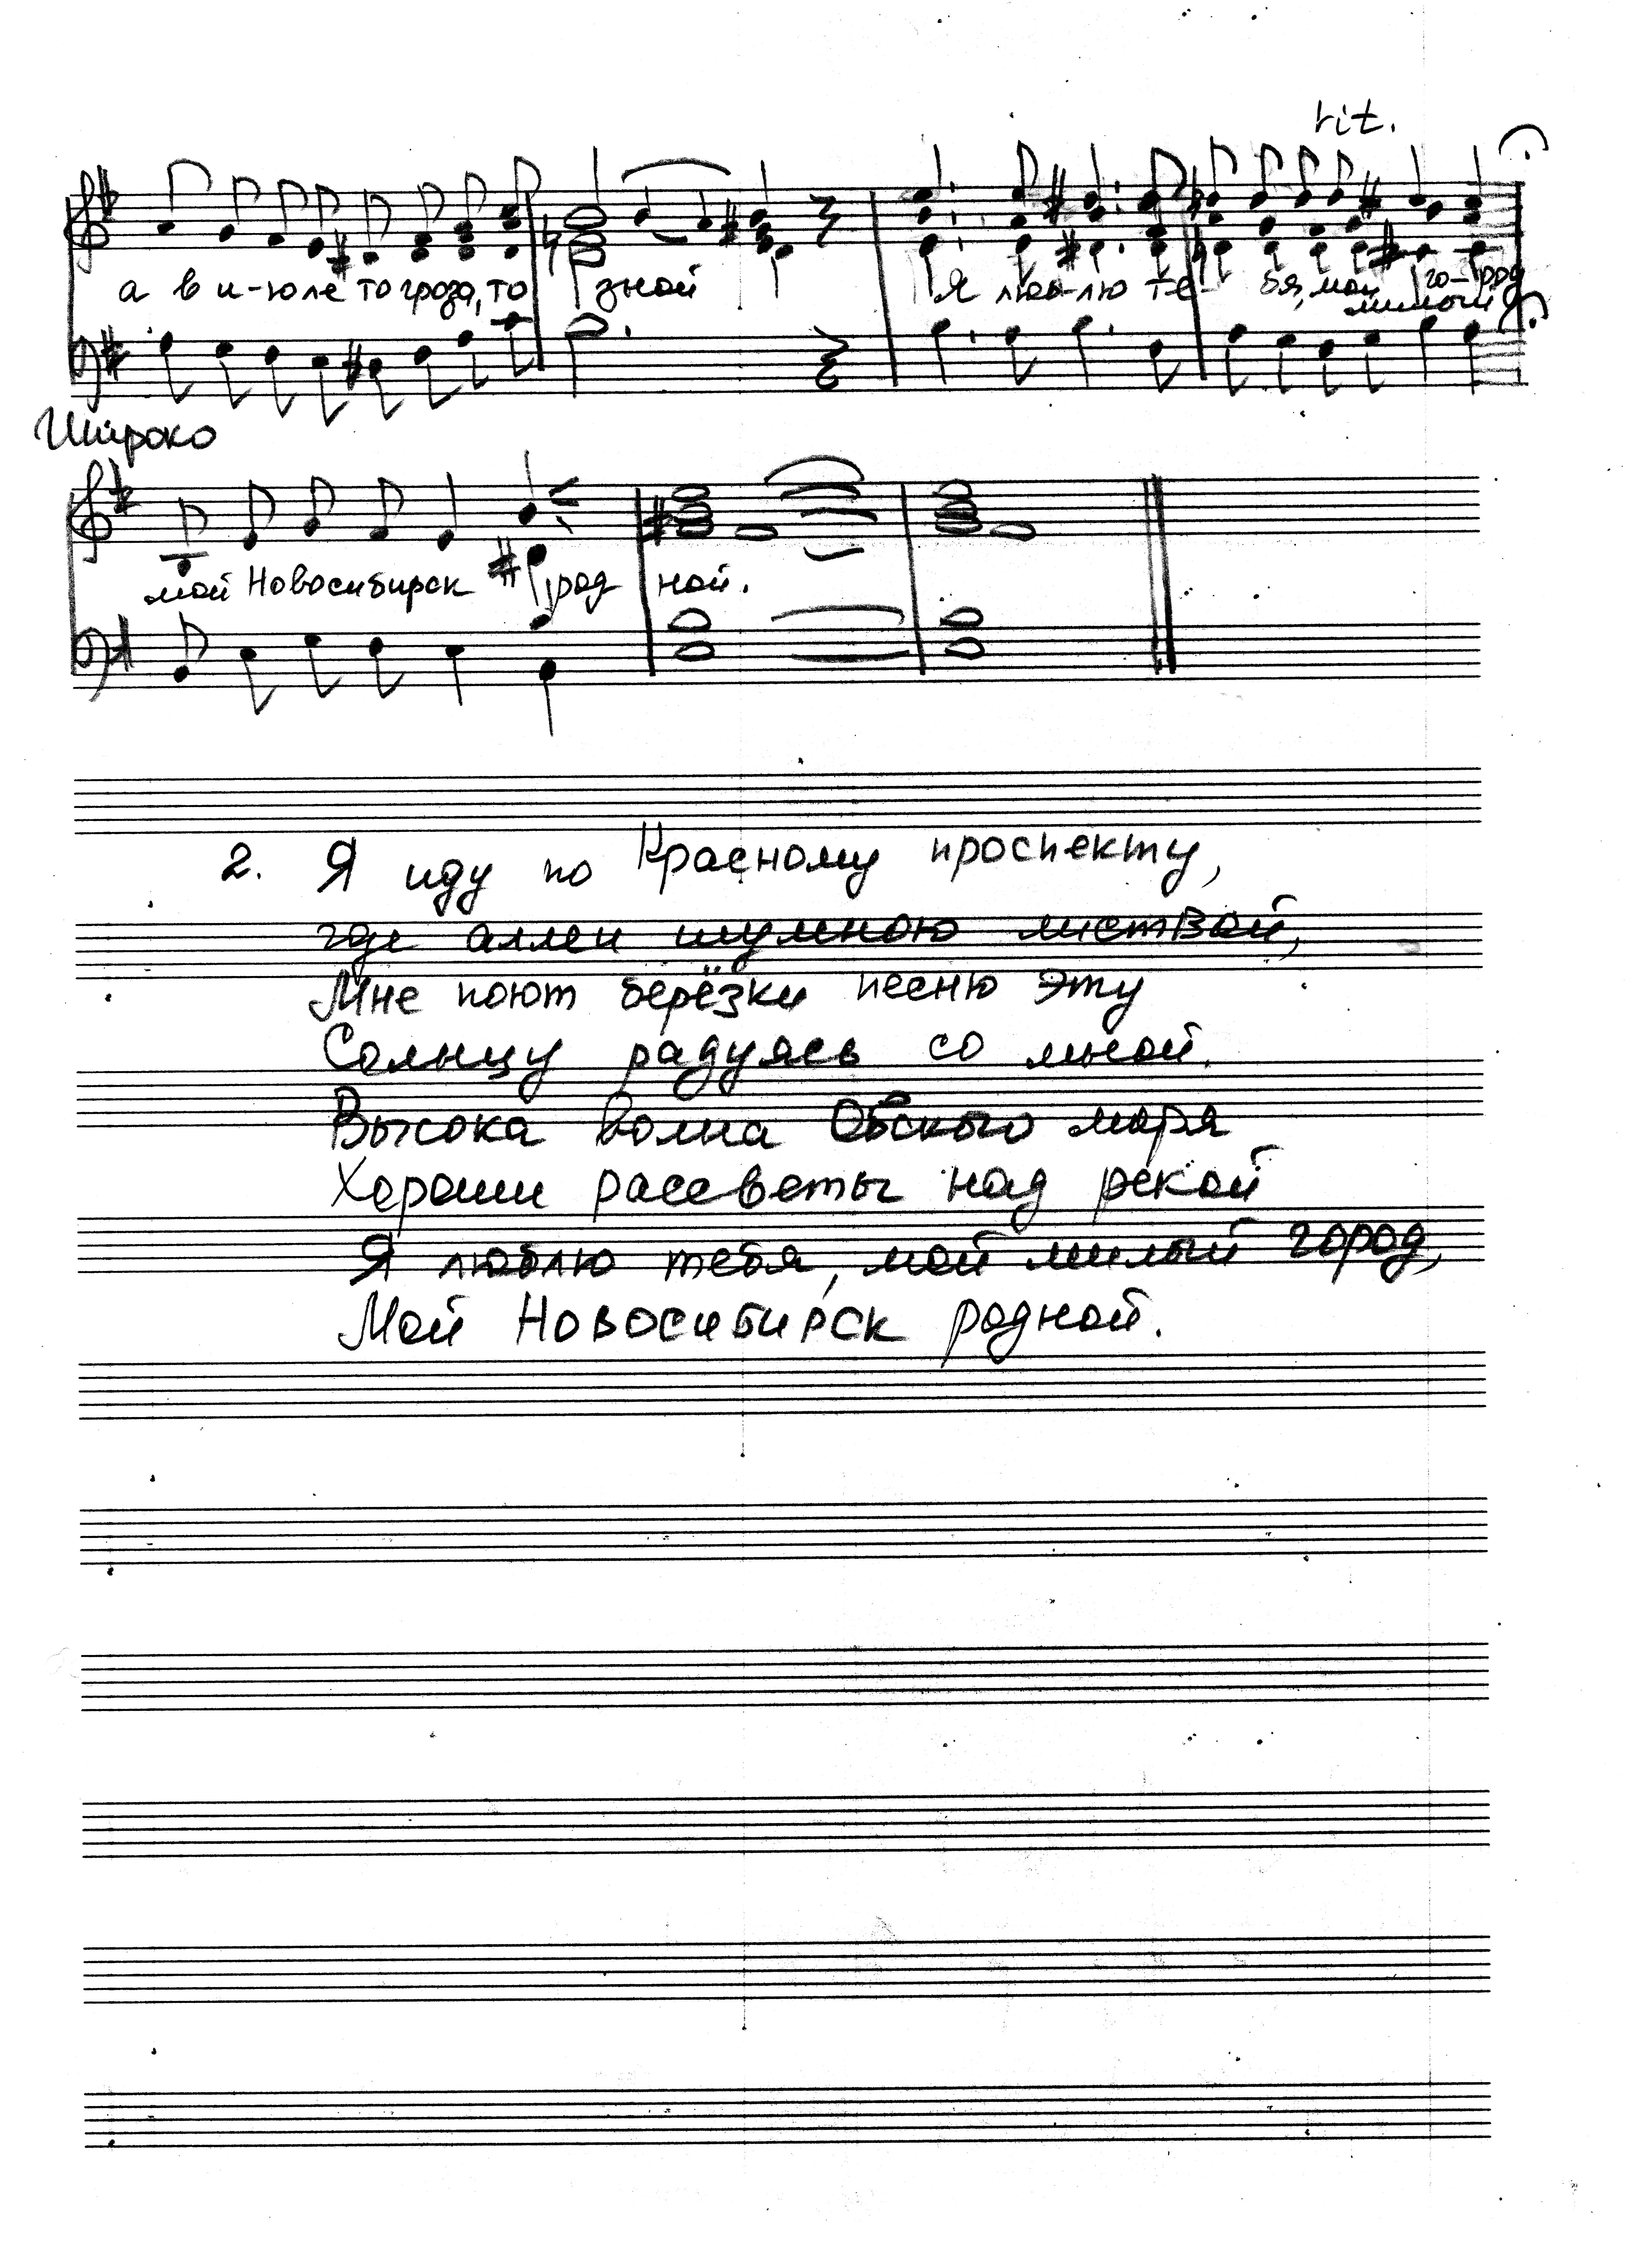 rit.
а в и-юле то гроза, то зной я люб-лю те- бя, мой го-род
милый
Широко
мой Новосибирск род ной.
2. Я иду по Красному проспекту,
где аллеи шумною листвой,
Мне поют берёзки песню эту
Солнцу радуясь со мной.
Высока волна Обского моря
Хороши рассветы над рекой
Я люблю тебя, мой милый город,
Мой Новосибирск родной.